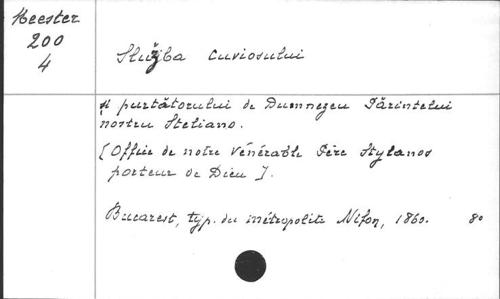 Meester
200
4
Služba Cuviosului
și purtătorului de Dumnezeu Părintelui
nostru Steliano.
[Office de notre Vénérable Père Stylanos
porteur de Dieu].
Bucarest, typ. du métropolite Nifon, 1860. 8°